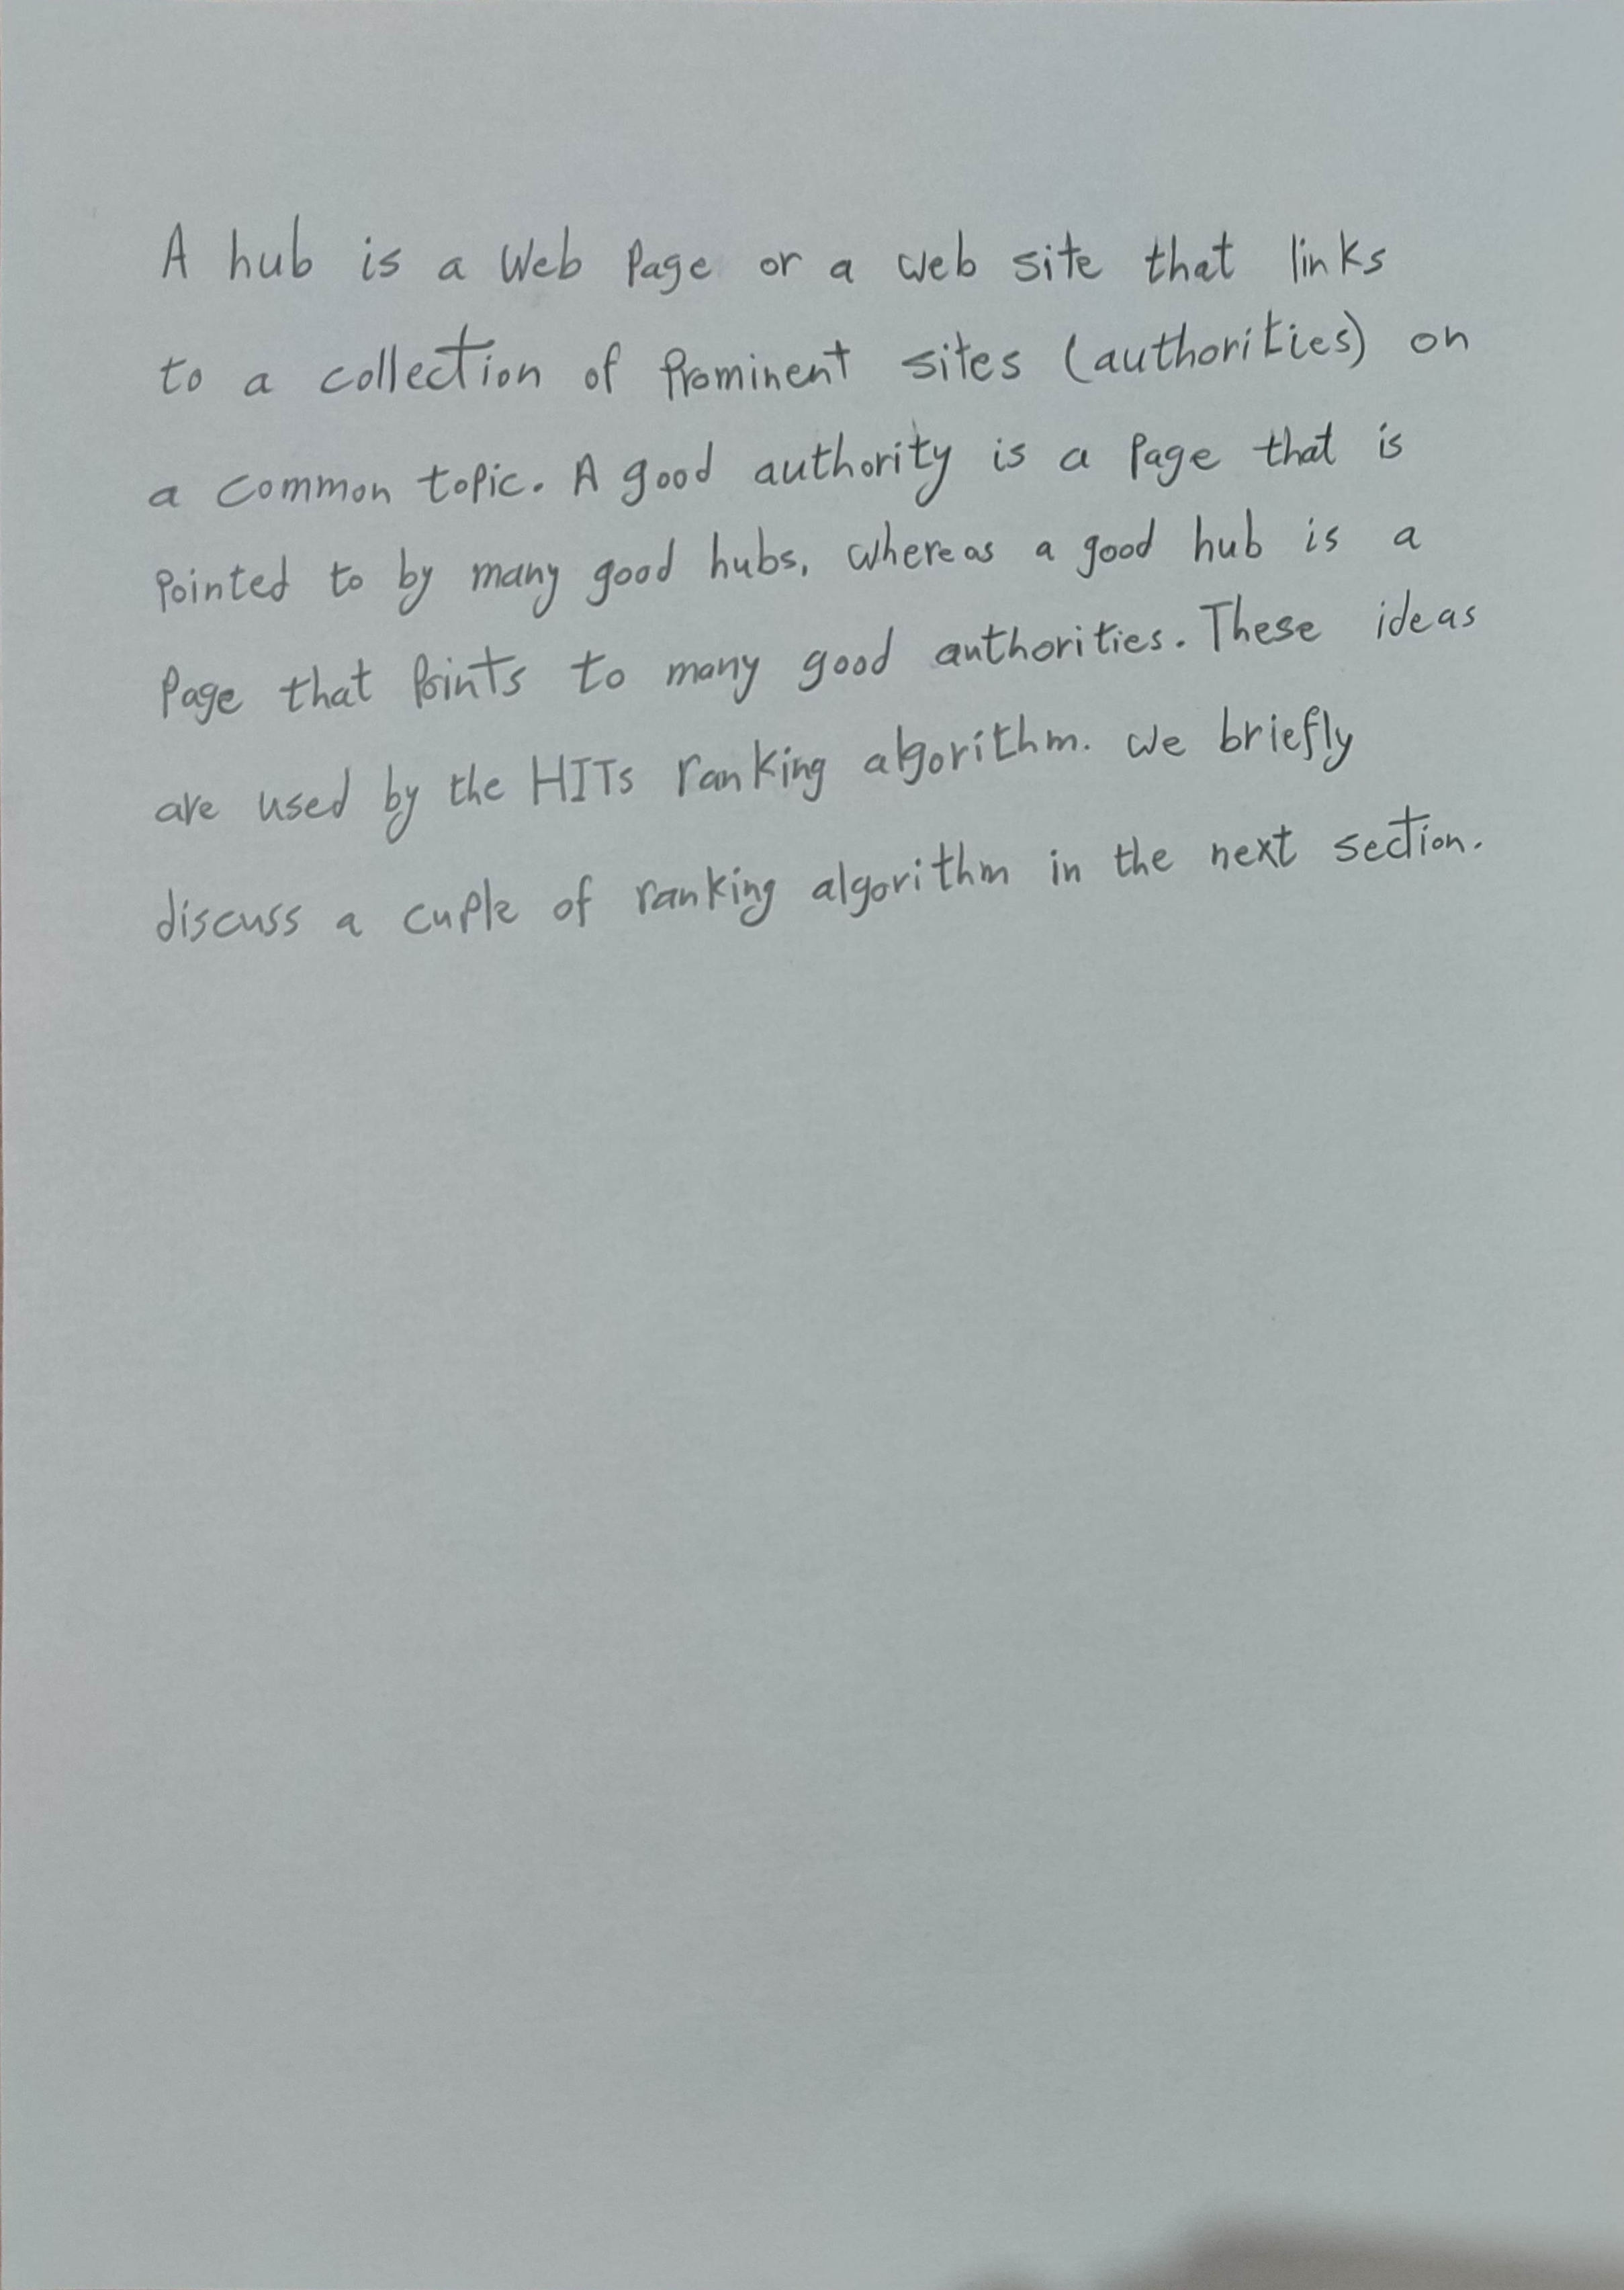 A hub is a Web Page or a web site that links
to a collection of Prominent sites (authorities) on
a common topic. A good authority is a Page that is
Pointed to by many good hubs, whereas a good hub is a
Page that Points to many good authorities. These ideas
are used by the HITs ranking algorithm. We briefly
discuss a cuple of ranking algorithm in the next section.